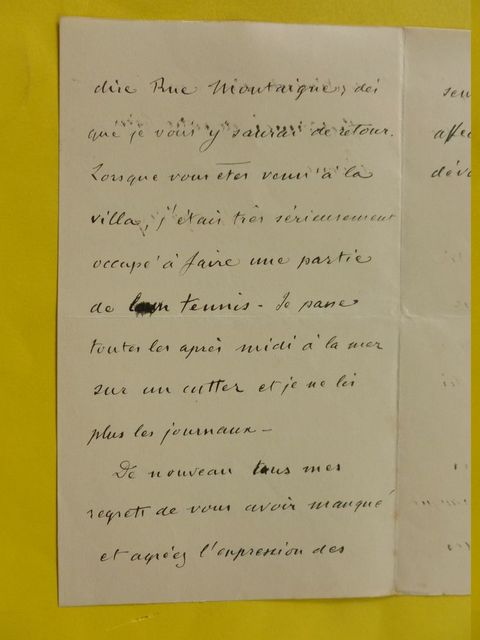 dire Rue Montaigne, dès
que je vous y saurai de retour.
Lorsque vous êtes venu à la
villa, j'étais très sérieusement
occupé à faire une partie
de tennis - Je passe
toutes les après midi à la mer
sur un cutter et je ne lis
plus les journaux -
De nouveau tous mes
regrets de vous avoir manqué
et agréez l'expression des
sen
affec
dévo